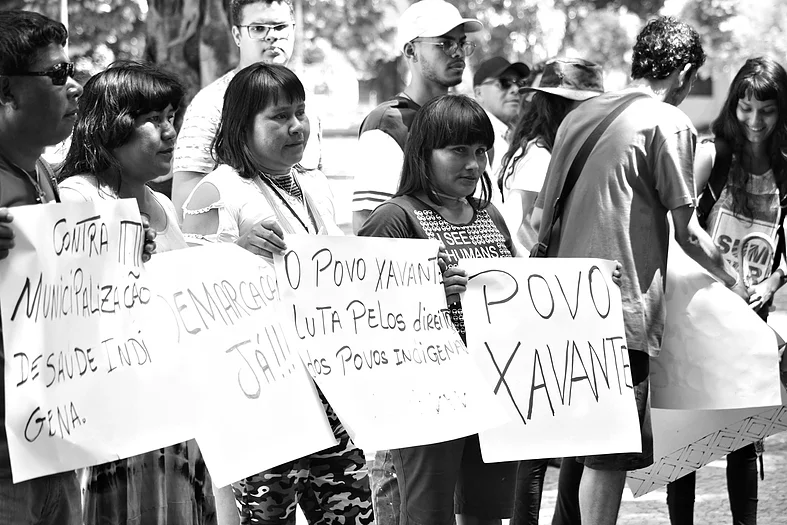 CONTRA
MUNICIPALIZAÇÃO
DE SAUDE INDI
GENA.
DEMARCAÇÃO
JÁ!!!
O POVO XAVANTE
LUTA PELOS direitos
dos POVOS INDÍGENAS
POVO
XAVANTE
I SEE
HUMANS